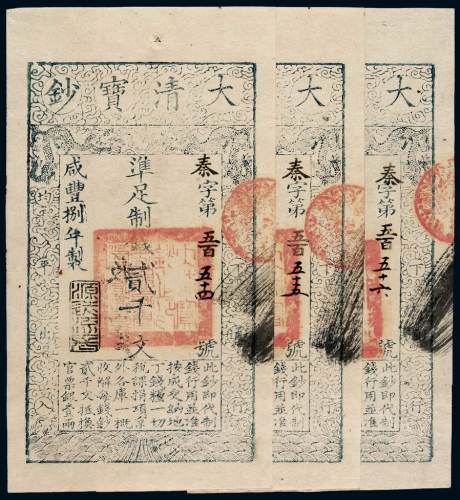 大
秦字第五百五十六號
此鈔即代制
錢行用並准
大
秦字第五百五十五號
此鈔即代制
錢行用並准
大清寶鈔
秦字第五百五十四號
準足制錢貳千文
咸豐捌年製
均平出入
此鈔即代制
錢行用並准
按成交納地
丁錢糧一切
稅課捐項京
外各庫一概
收解每錢鈔
貳千文抵換
官票銀壹兩